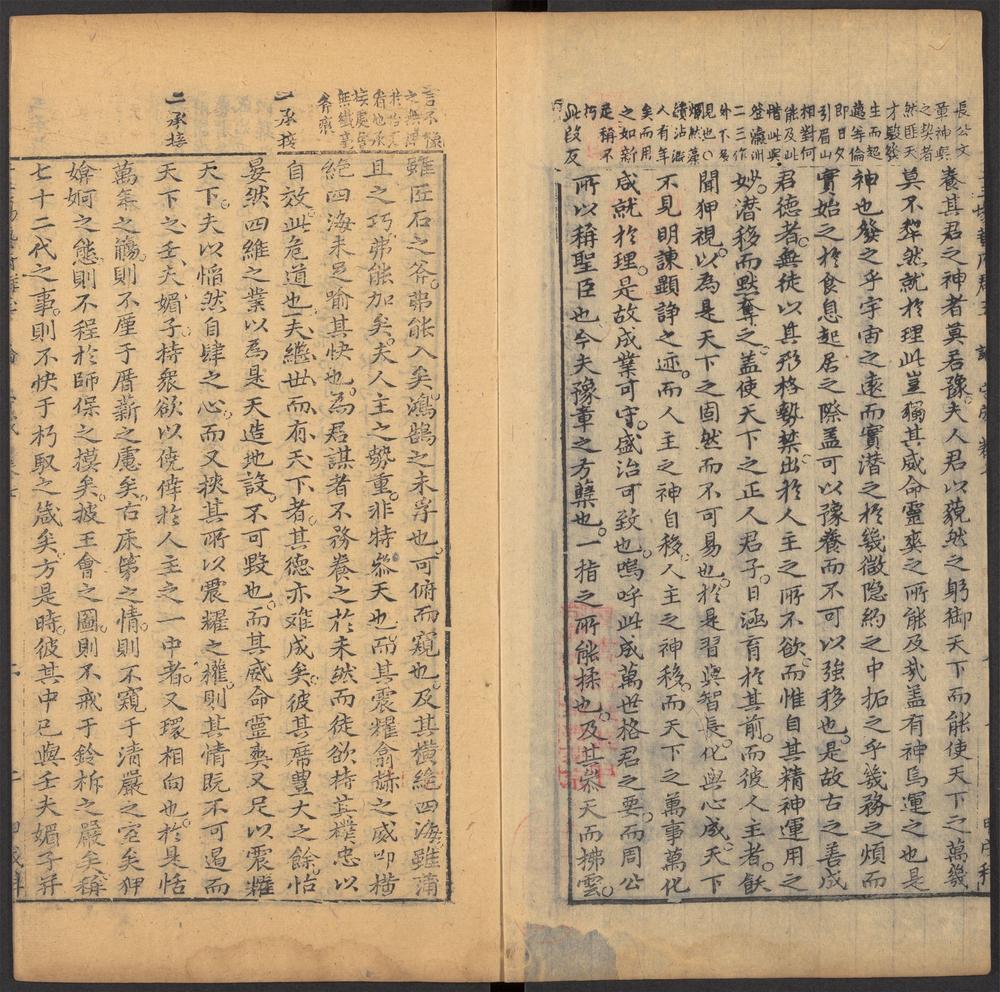 長公文
之契者
然匪天
才駿發
生而起
遠等倫
即日夕
引眉山
相對何
能及此
惜此與
登瀛洲
二三作
外不多
見也○
爛然藻
人有年
矣而用
之如新
是稱不
朽
此段反
養其君之神者莫若豫夫人君以藐然之躬御天下而能使天下之萬幾
莫不犂然就於理此豈獨其威命靈爽之所能及哉盖有神焉運之也是
神也發之乎宇宙之遠而實潜之於幾微隐約之中拓之乎幾務之煩而
實始之於食息起居之際盖可以豫養而不可以強移也是故古之善成
君德者無徒以其形格勢禁出於人主之所不欲而惟自其精神運用之
妙潜移而默奪之盖使天下之正人君子日涵育於其前而彼人主者飫
聞狎視以為是天下之固然而不可易也於是習與智長化與心成天下
不見明諫顯諍之迹而人主之神自移人主之神移而天下之萬事萬化
咸就於理是故成業可守盛治可致也嗚呼此成萬世格君之要而周公
所以稱聖臣也今夫豫章之方蘖也一指之所能揉也及其叅天而拂雲
言不豫
之無濟
接處曾
無纖毫
斧鑿
一承接
二承接
雖臣石之斧弗能入矣鴻鵠之未孚也可俯而窺也及其橫絶四海雖蒲
且之巧弗能加矣夫人主之勢重非特叅天也而其震耀翕赫之威叩橫
絶四海未足喻其快也為君謀者不務養之於未然而徒欲恃其樸忠以
自效此危道也夫繼世而有天下者其德亦难成矣彼其席豊大之餘怙
晏然四維之業以為是天造地設不可毁也而其威命靈爽又足以震耀
天下夫以慆然自肆之心而又挾其所以震耀之權則其情既不可遏而
天下之壬夫媚子持衆欲以僥倖於人主之一中者又環相向也於是恬
萬年之觴則不厪于厝薪之慮矣右床笫之情則不窺于清嚴之室矣狎
媕婀之態則不程於師保之摸矣披王會之圖則不戒于鈴柝之嚴矣稱
七十二代之事則不快于朽馭之箴矣方是時彼其中已與壬夫媚子并